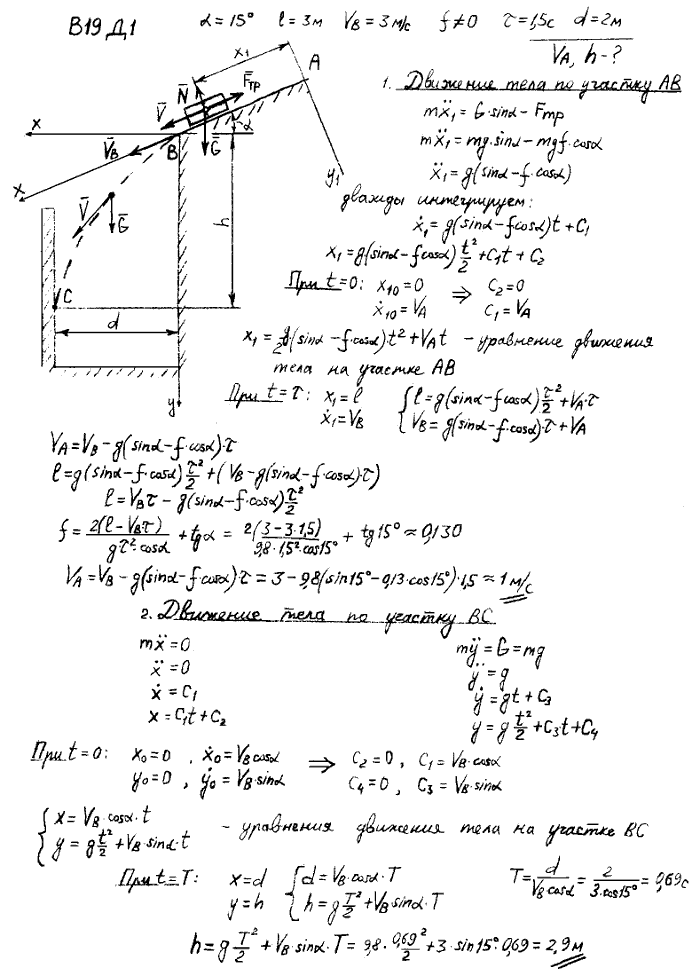 В19 Д.1
α = 15° l = 3м V_B = 3 м/с f ≠ 0 τ = 1,5с d = 2м
V_A, h - ?
x₁ A
N̄ F̄тр V̄ α
x V̄_B B Ḡ y₁
x V̄ Ḡ h
C d
y
1. Движение тела по участку AB
mẍ₁ = G·sinα - Fтр
mẍ₁ = mg·sinα - mgf·cosα
ẍ₁ = g(sinα - f·cosα)
дважды интегрируем:
ẋ₁ = g(sinα - fcosα)t + C₁
x₁ = g(sinα - fcosα) t²/2 + C₁t + C₂
При t=0: x₁₀ = 0 ⇒ C₂ = 0
ẋ₁₀ = V_A C₁ = V_A
x₁ = ½g·(sinα - f·cosα)·t² + V_A t - уравнение движения
тела на участке AB
При t = τ: x₁ = l { l = g(sinα - fcosα) τ²/2 + V_A·τ
ẋ₁ = V_B V_B = g(sinα - f·cosα)·τ + V_A
V_A = V_B - g(sinα - f·cosα)·τ
l = g(sinα - f·cosα) τ²/2 + (V_B - g(sinα - f·cosα)·τ)
l = V_Bτ - g(sinα - f·cosα) τ²/2
f = 2(l - V_Bτ)/(gτ²·cosα) + tgα = 2(3 - 3·1,5)/(9,8·1,5²·cos15°) + tg15° ≈ 0,130
V_A = V_B - g(sinα - f·cosα)·τ = 3 - 9,8(sin15° - 0,13·cos15°)·1,5 ≈ 1 м/с
2. Движение тела по участку BC
mẍ = 0 mÿ = G = mg
ẍ = 0 ÿ = g
ẋ = C₁ ẏ = gt + C₃
x = C₁t + C₂ y = g t²/2 + C₃t + C₄
При t = 0: x₀ = 0 , ẋ₀ = V_B cosα ⇒ C₂ = 0 , C₁ = V_B·cosα
y₀ = 0 , ẏ₀ = V_B·sinα C₄ = 0 , C₃ = V_B·sinα
{ x = V_B·cosα·t
y = g t²/2 + V_B·sinα·t - уравнения движения тела на участке BC
При t = T: x = d { d = V_B·cosα·T T = d/(V_B cosα) = 2/(3·cos15°) = 0,69с
y = h h = g T²/2 + V_B sinα·T
h = g T²/2 + V_B·sinα·T = 9,8·0,69²/2 + 3·sin15°·0,69 = 2,9 м